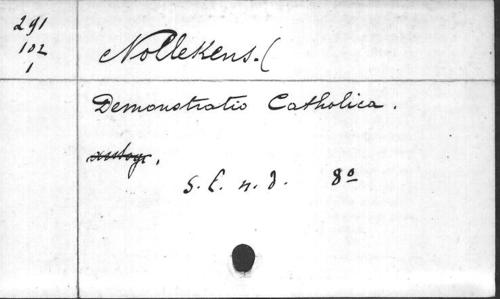 291
102
1
Nollekens. (
Demonstratio Catholica.
s. l. n. d. 8º